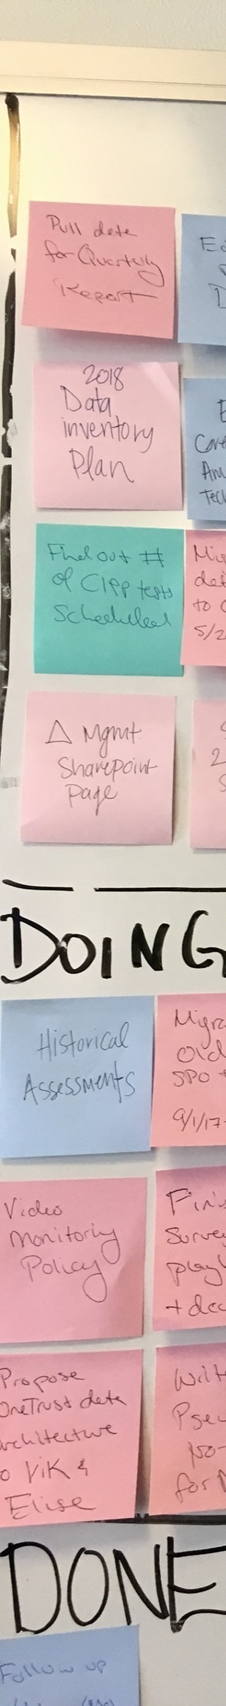 Pull data
for Quarterly
Report
2018
Data
inventory
Plan
Find out #
of CIPP tests
Scheduled
Δ Mgmt
Sharepoint
page
Mig
to
5/2
DOING
Historical
Assessments
Migra
Old
SPO +
9/1/17-
Video
Monitoring
Policy
Fin
Surve
play
+ dec
Propose
OneTrust data
architecture
to Vik &
Elise
Writ
Pseu
for
DONE
Follow up